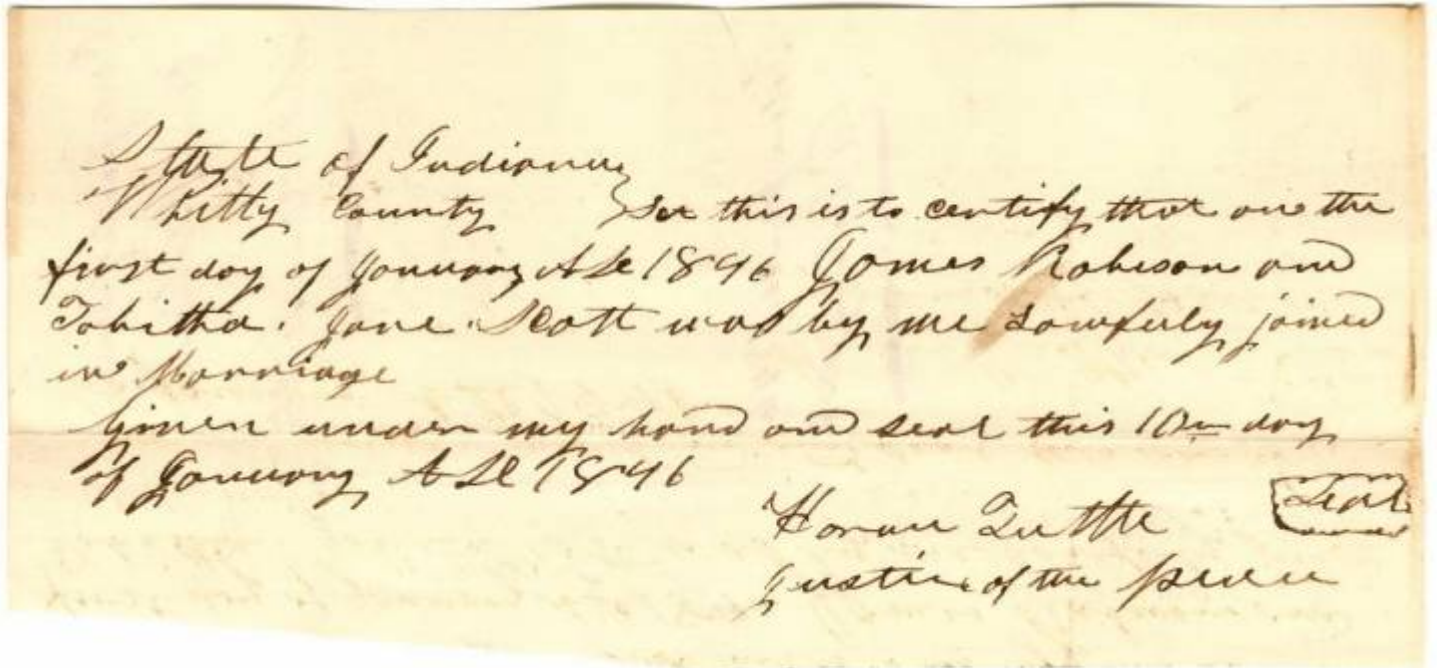 State of Indiana
Whitly County } Sct this is to certify that on the
first day of January AD 1846 James Robison and
Tabitha Jane Scott was by me Lawfuly joined
in Marriage
Given under my hand and seal this 10th day
of January AD 1846
Seal
Horace Tuttle
Justice of the peace